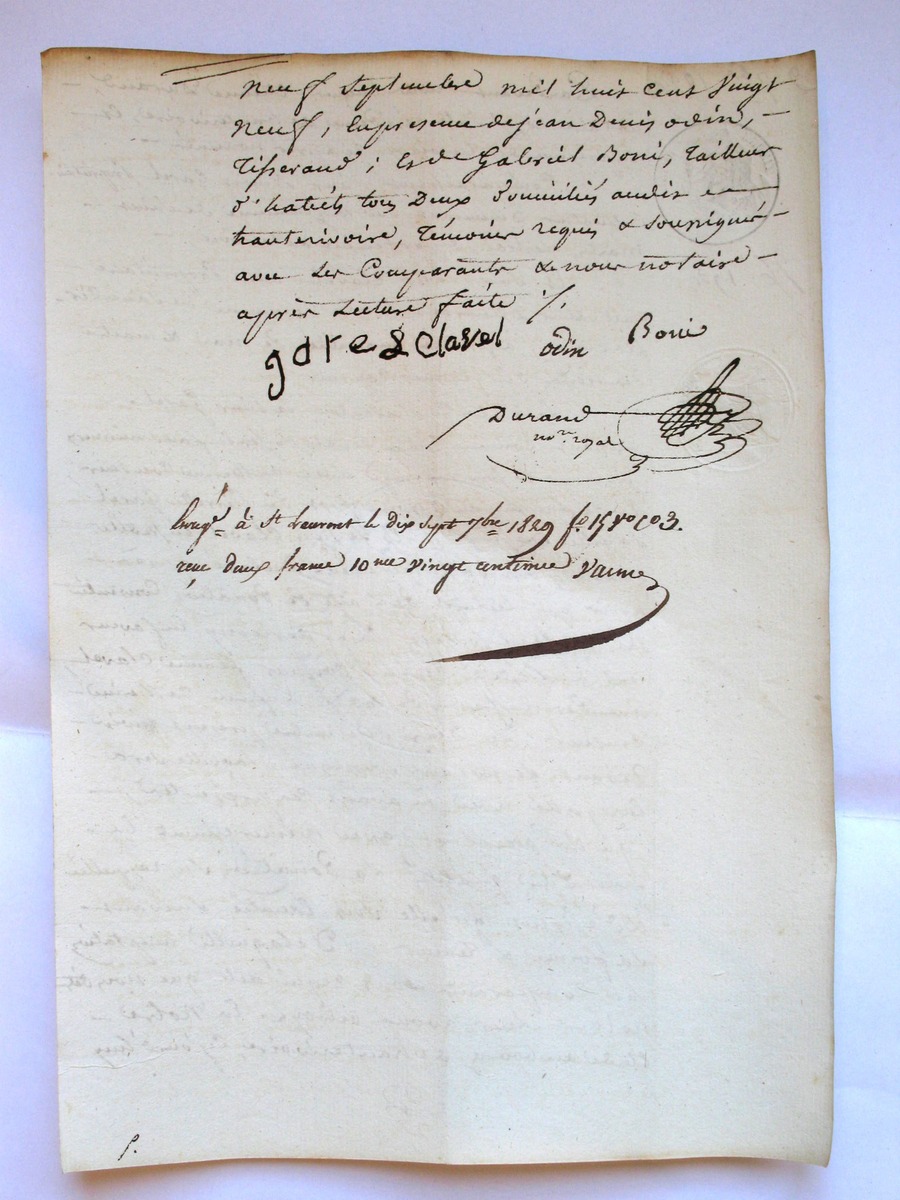 neuf septembre mil huit cent vingt
neuf, en presence de jean Denis odin,
Tisserand; et de Gabriel Boni, Tailleur
d'habits tous Deux domiciliés audit
hauterivoire, témoins requis & soussignés
avec les Comparants & nous notaire
après Lecture faite %.
Clavel
odin
Boni
Durand
nore royal
Enregé à St Laurent le dix sept 7bre 1829 fo 15 Vo Co 3.
reçu deux francs 10me vingt centimes